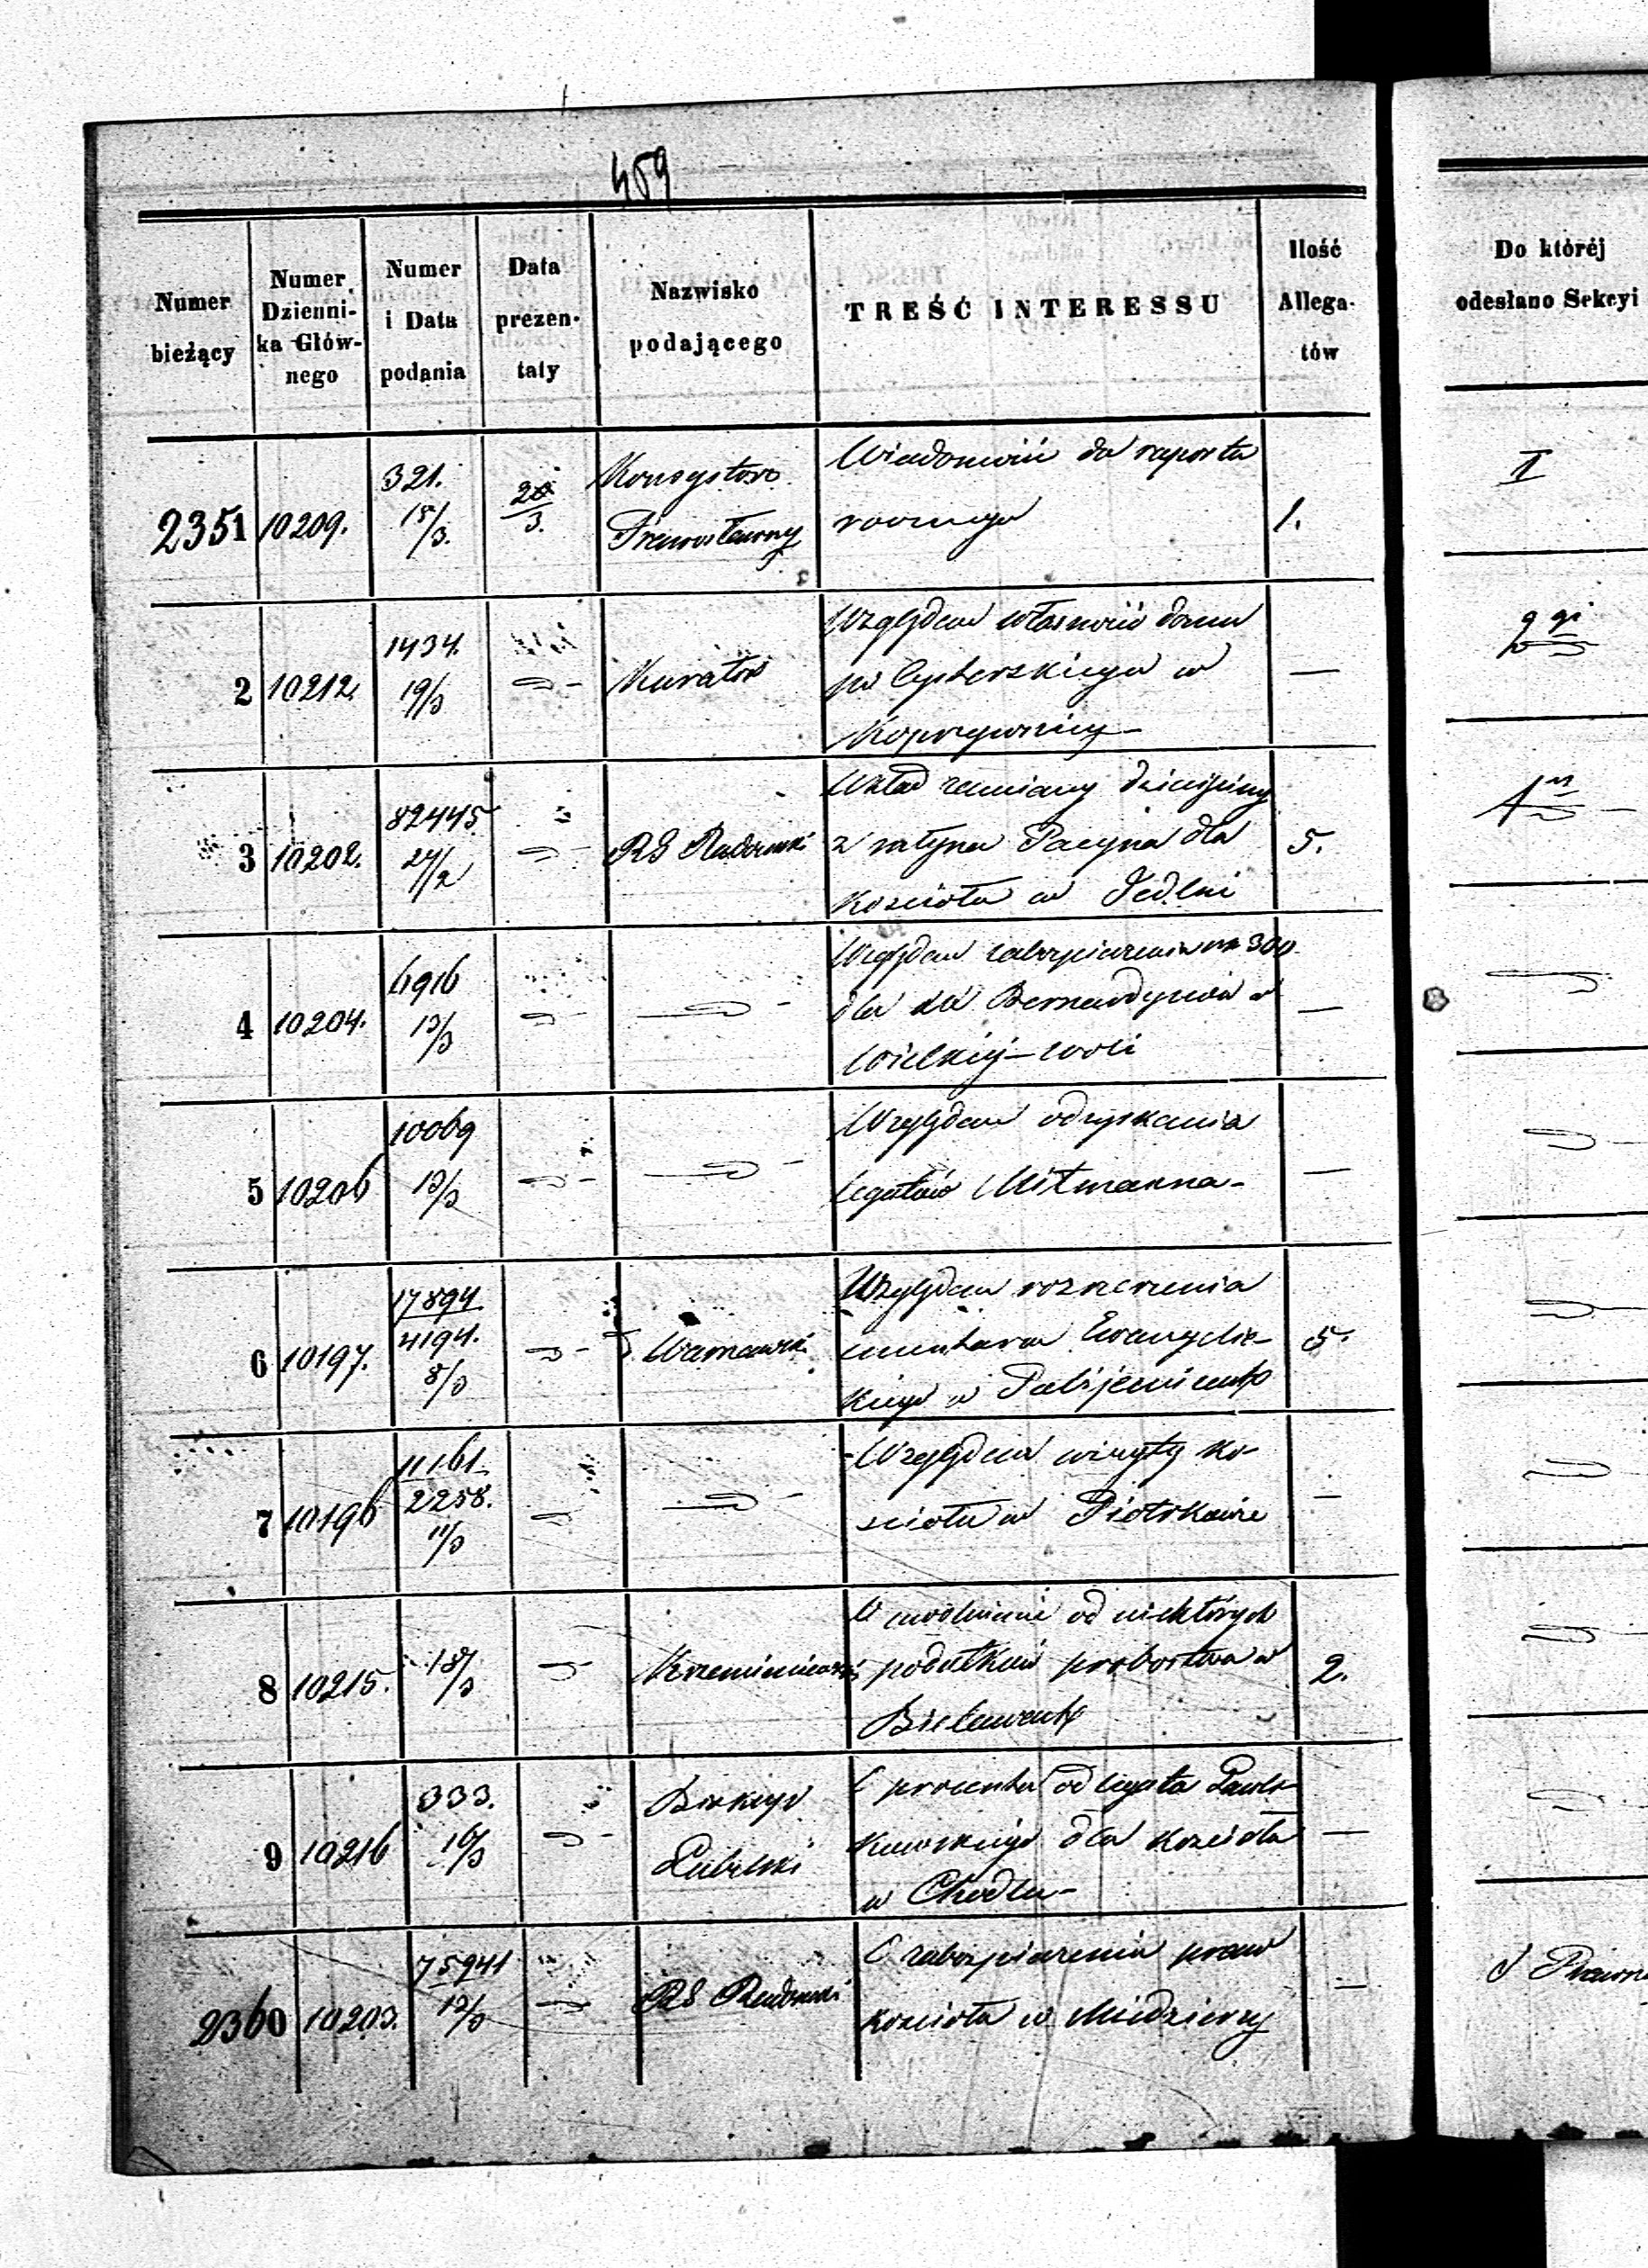 459
Numer bieżący
Numer Dzienni- ka Głów- nego
Numer i Data podania
Data prezen- taty
Nazwisko podającego
TREŚĆ INTERESSU
Ilość Allega- tów
Do któréj odesłano Sekcyi
2351 10209. 321. 15/3. 20/3. Konsystorz Wiadomość do raportu
rocznego 1. II
2 10212. 1434. 19/3 Kurator Względem własności domu
po Cysterskiego w —
Koprzywnicy
3 10202. 82445 24/2 RG Radomski Układ zamiany dziesięciny
z młyna Pacyna dla 5.
Kościoła w Jedlni
4 10204. 6916 13/3 Względem zabezpieczenia 300
dla Bernardynów w —
Wielkiej-Woli
5 10206 10069 13/3 Względem odzyskania
legatów Mitmanna —
6 10197. 17894 4194. 8/3 Warszawski Względem rozszerzenia
cmentarza Ewangelic- 5.
kiego w
7 10196 11161 2258. 11/3 Względem wizyty Ko-
ścioła w Piotrkowie —
8 10215. 18/3 Uwolnienie od niektórych
podatków probostwa w 2.
9 10216 333. 16/3 Biskup Lubelski O procenta od legata
dla Kościoła —
w Chodlu
2360 10203. 75941 13/3 RG Radomski O zabezpieczenia praw
Kościoła w Miedzierzy —